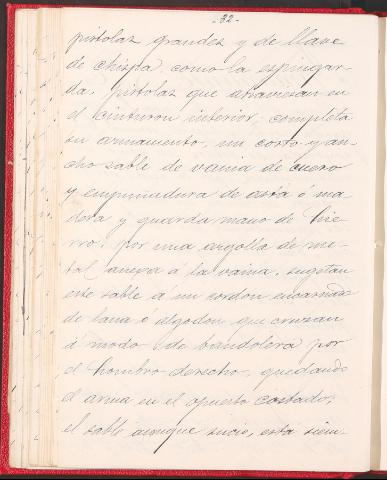 -32-
pistolas grandes y de llave
de chispa, como la espingar-
da. pistolas que atraviesan en
el cinturon interior, completa
su armamento, un corto y an-
cho sable de vaina de cuero
y empuñadura de asta ó ma-
dera y guarda mano de hie-
rro; por una argolla de me-
tal aneja á la vaina, sugetan
este sable á un cordon encarnado
de lana ó algodon que cruzan
á modo de bandolera por
el hombro derecho, quedando
el arma en el opuesto costado;
el sable aunque sucio, está siem-